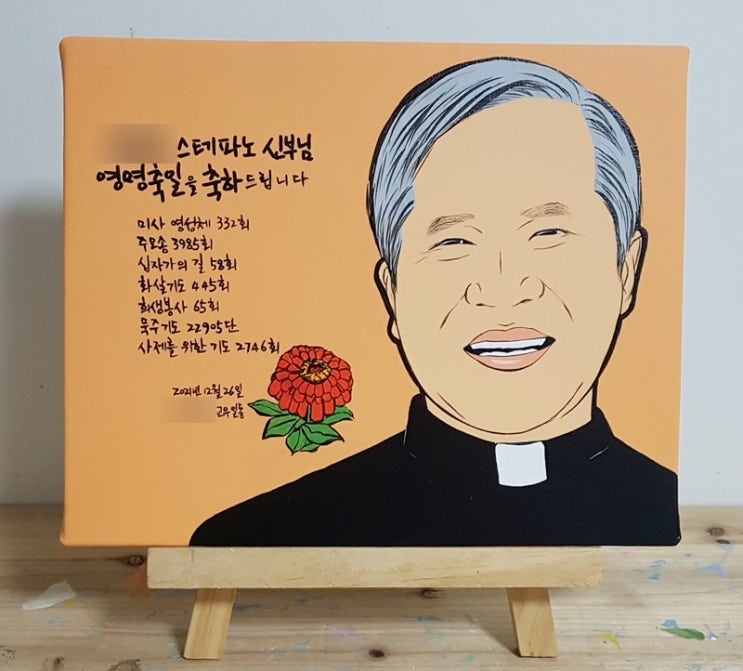 스테파노 신부님
영명축일을 축하드립니다
미사 영성체 332회
주모송 3985회
십자가의 길 58회
화살기도 445회
희생봉사 65회
묵주기도 22905단
사제를 위한 기도 2746회
2021년 12월 26일
교우일동